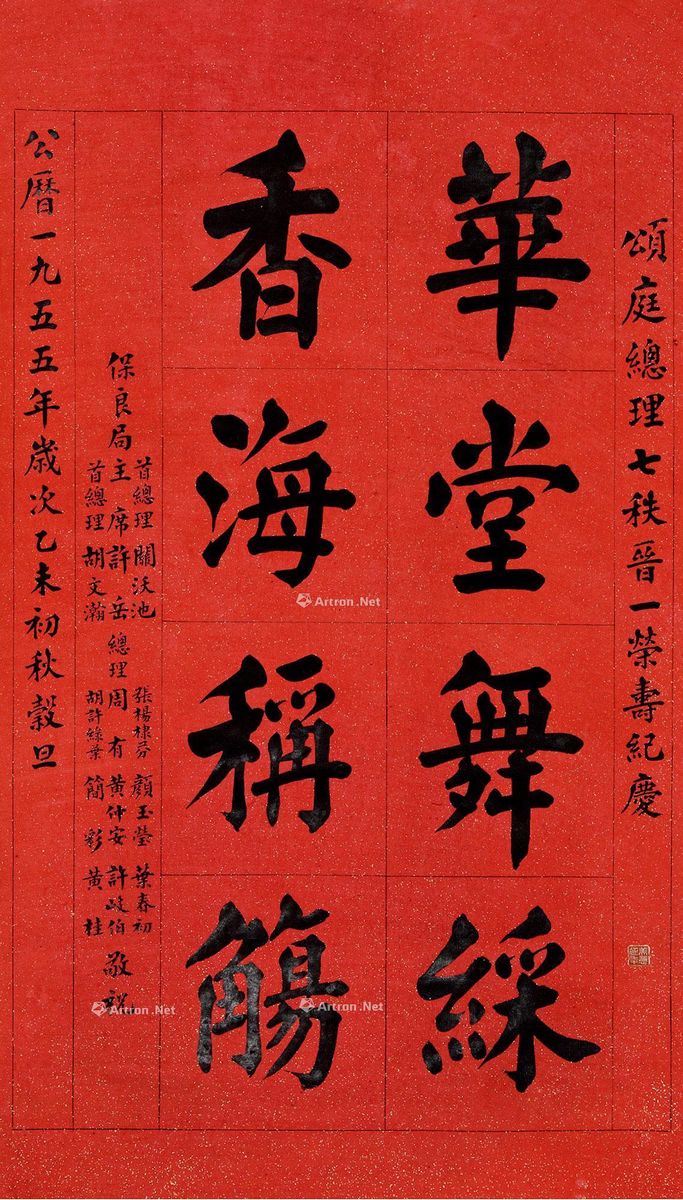 頌庭總理七秩晉一榮壽紀慶
華堂舞綵
香海稱觴
保良局主席許岳
首總理關沃池
首總理胡文瀚
總理
張楊棣芬 顏玉瑩 葉春初
周有 黃仲安 許岐伯
胡許絲葉 簡彩 黃桂
敬祝
公曆一九五五年歲次乙未初秋穀旦
Artron.Net
Artron.Net
Artron.Net